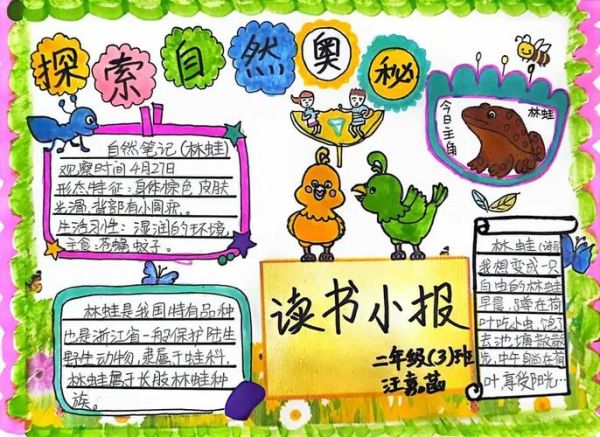 探索自然奥秘
自然笔记(林蛙)
观察时间4月27日
形态特征:身体棕色 皮肤
光滑,背部有小圆疣。
生活习性:湿润的环境,
主食:苍蝇蚊子。
今日主角
林蛙
林蛙是我国特有品种
也是浙江省一般保护陆生
野生动物,隶属于蛙科,
林蛙属于长肢林蛙种
族。
读书小报
二年级(3)班
林蛙
我想变成一只
自由的林蛙
早晨,蹲在荷
叶吃小虫,饱了
去池塘散散
步,中午自当在荷
叶,享受阳光…